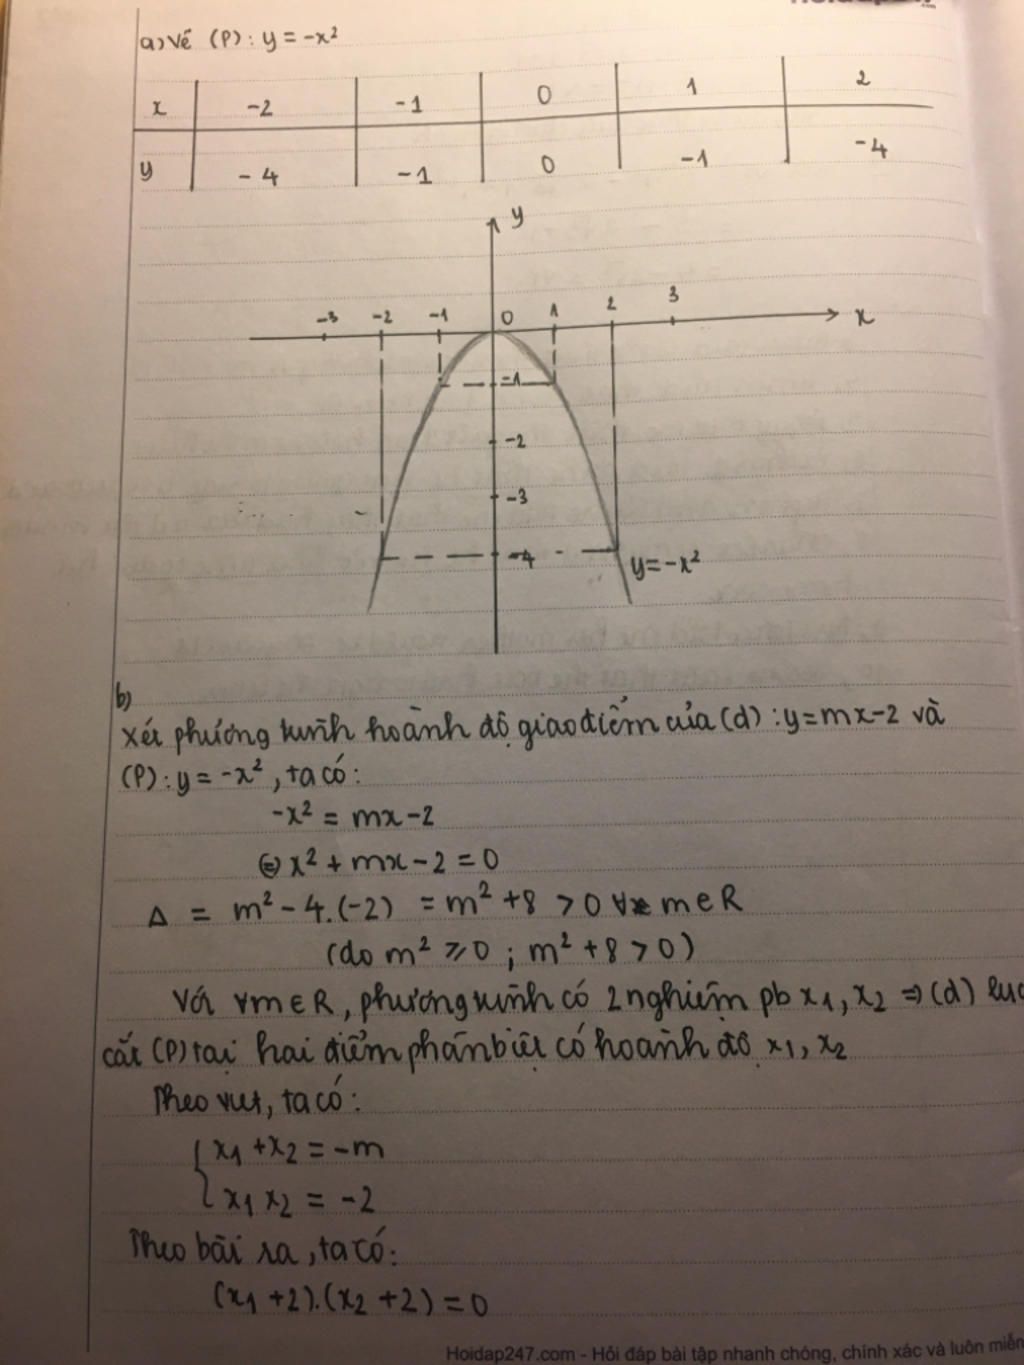 a) Vẽ (P): y = -x²
x -2 -1 0 1 2
y -4 -1 0 -1 -4
y
-3 -2 -1 0 1 2 3 x
-1
-2
-3
-4
y=-x²
b)
Xét phương trình hoành độ giao điểm của (d): y=mx-2 và
(P): y = -x², ta có:
-x² = mx-2
⇔ x² + mx - 2 = 0
Δ = m² - 4.(-2) = m² + 8 > 0 ∀ m ∈ R
(do m² ≥ 0 ; m² + 8 > 0)
Với ∀m ∈ R, phương trình có 2 nghiệm pb x₁, x₂ ⇒ (d)
cắt (P) tại hai điểm phân biệt có hoành độ x₁, x₂
Theo viet, ta có:
{ x₁ + x₂ = -m
x₁ x₂ = -2
Theo bài ra, ta có:
(x₁ + 2).(x₂ + 2) = 0
Hoidap247.com - Hỏi đáp bài tập nhanh chóng, chính xác và luôn miễn